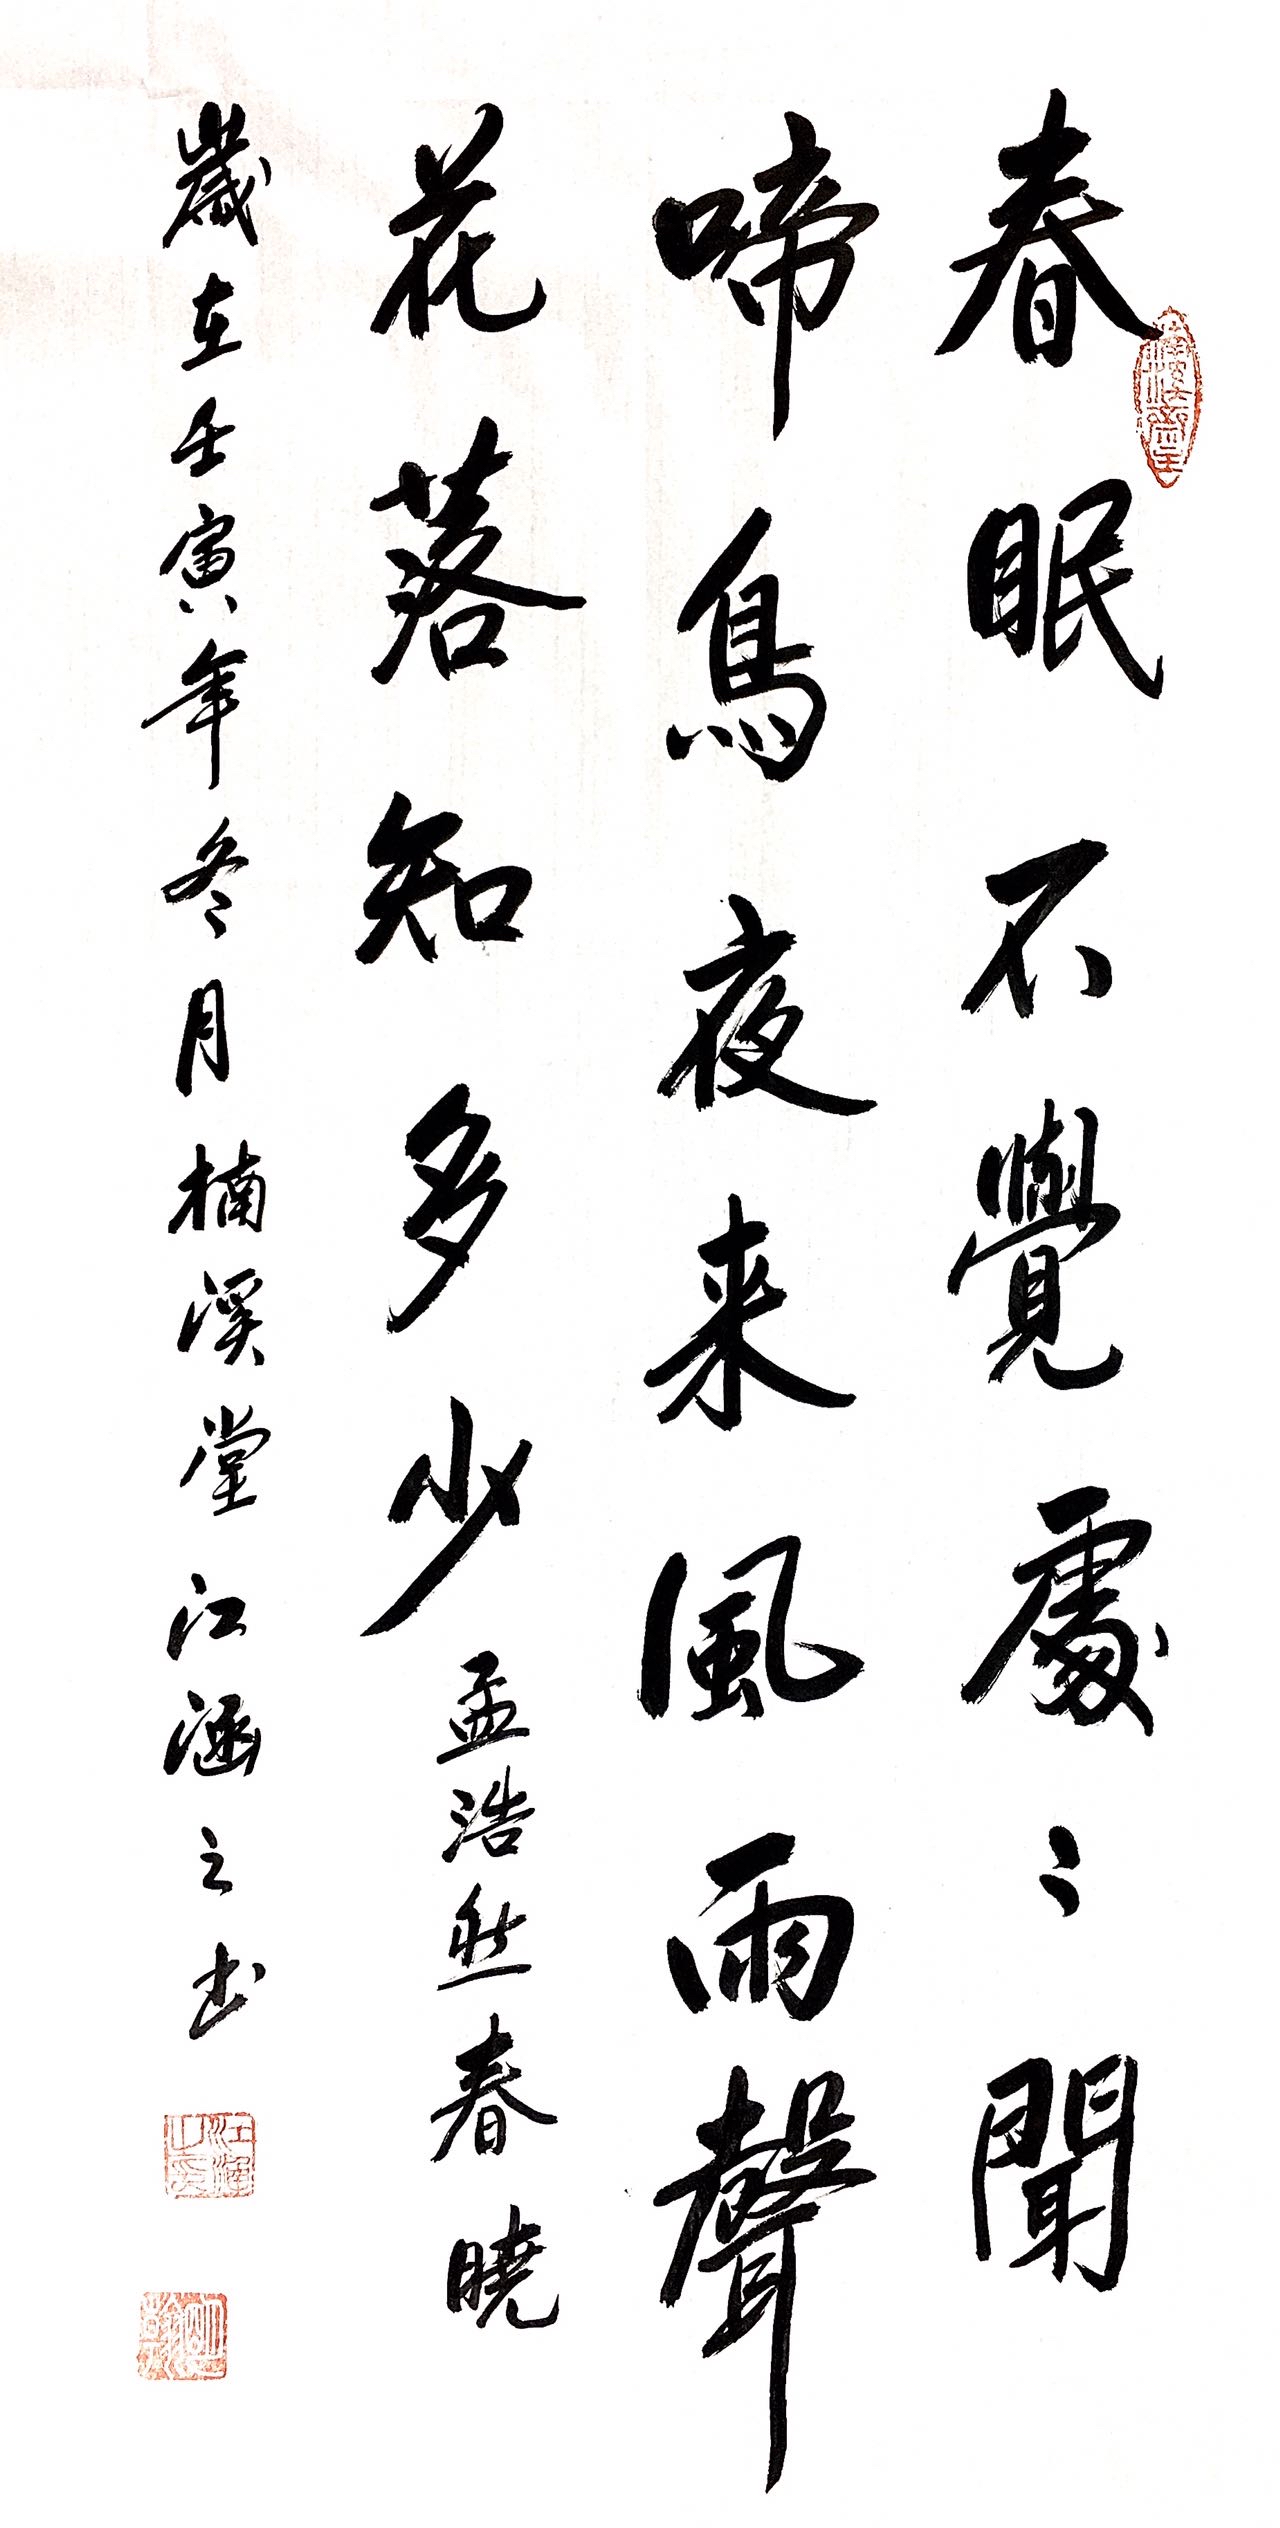 春眠不覺處〻聞
啼鳥夜来風雨聲
花落知多少孟浩然春曉
歲在壬寅年冬月楠溪堂江涵之书